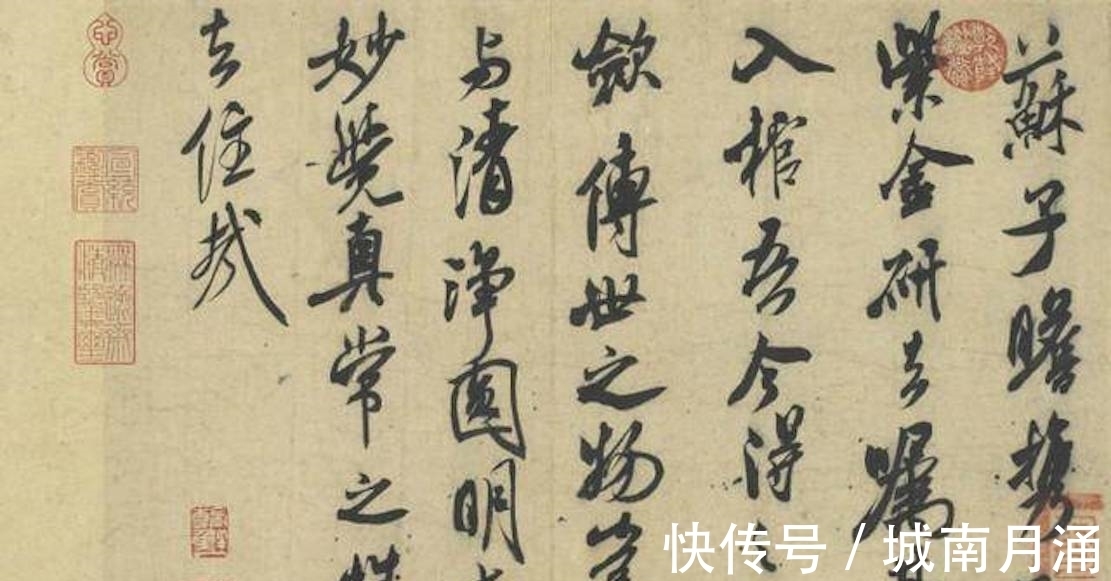 蘇子瞻携
紫金研去嘱
入棺吾今得
斂傳世之物
与清淨圓明
妙覺真常之
去住哉
心賞
快传号 / 城南月涌